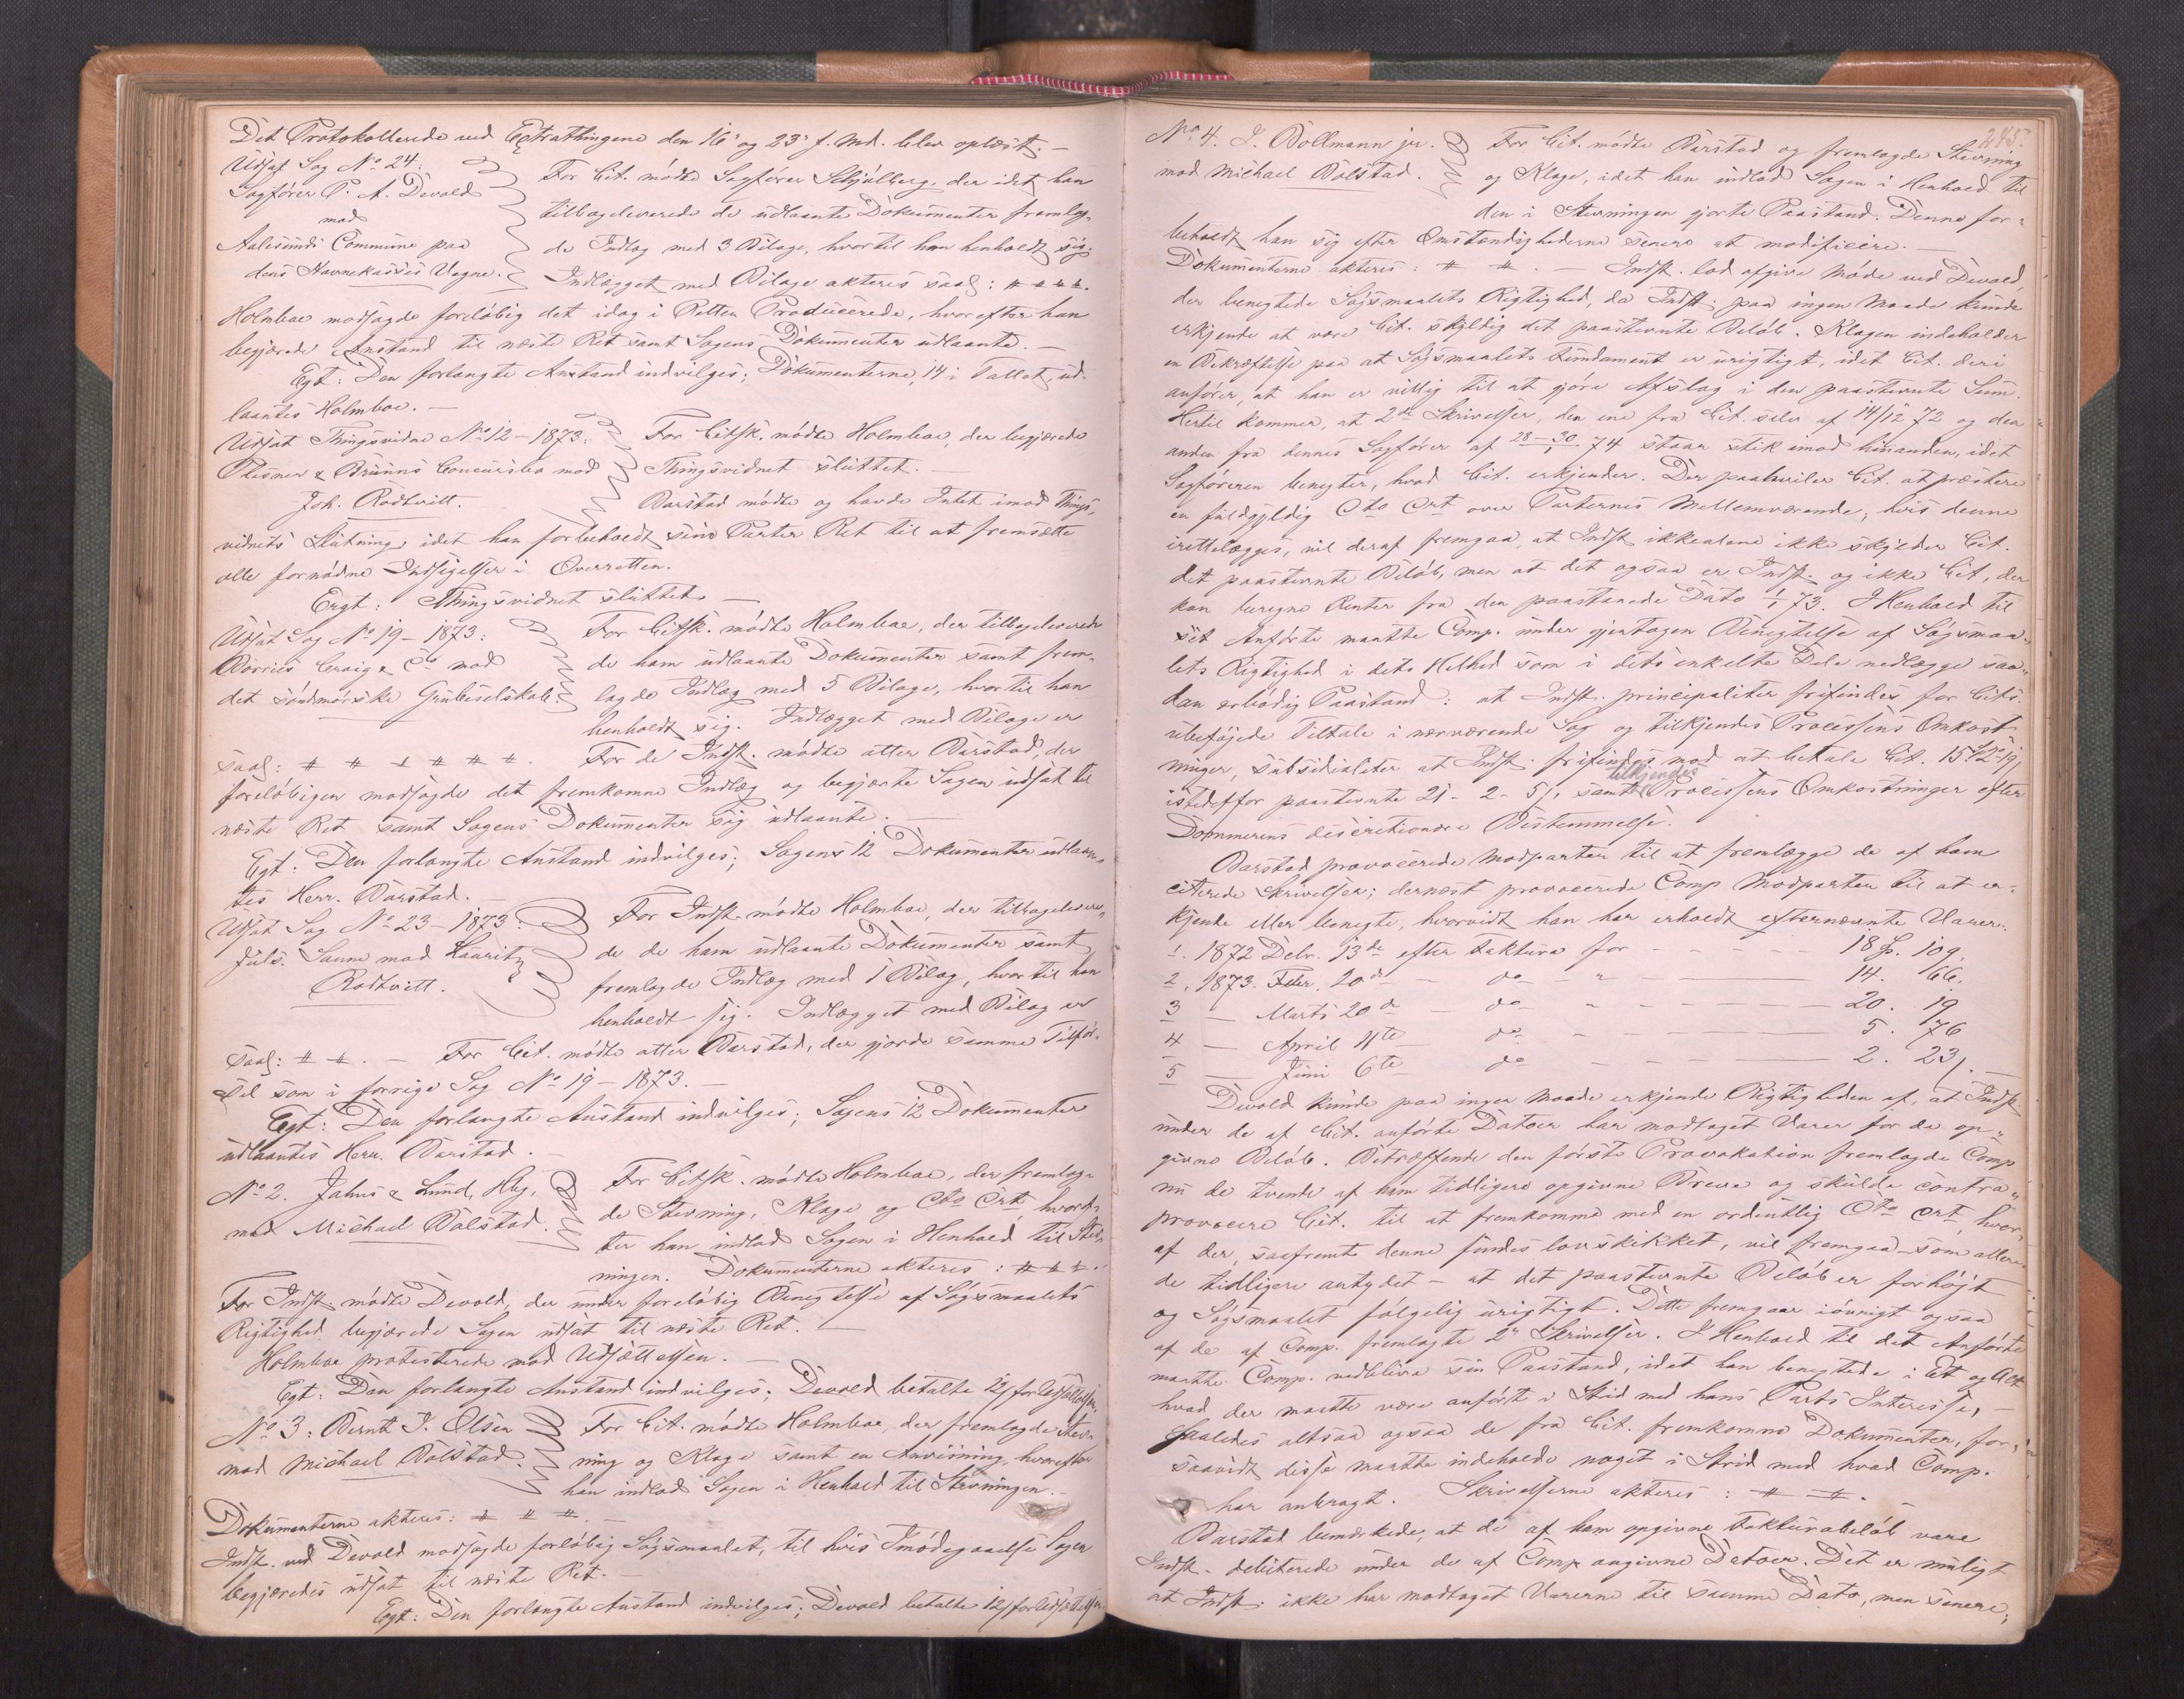 Det Protokollerede ved Extrathingene den 16de og 23de f. Md. blev oplæst. —
Udsat Sag No 24:
Sagfører P. A. Devold
mod
Aalesunds Commune paa
dens Havnekasses Vegne.
For Cit. mødte Sagfører Schjølberg, der idet han
tilbageleverede de udlaante Dokumenter fremlag-
de Indlæg med 3 Bilage, hvortil han henholdt sig.
Indlægget med Bilage akteres saal: # # # #.
Holmboe modsagde foreløbig det idag i Retten Producerede, hvorefter han
begjærede Anstand til næste Ret samt Sagens Dokumenter udlaante. —
Egt: Den forlangte Anstand indvilges; Dokumenterne, 14 i Tallet, ud-
laantes Holmboe. —
Udsat Thingsvidne No 12 – 1873:
Plesner & Bruuns Concursbo mod
Joh. Rodtvitt.
For Citsk. mødte Holmboe, der begjærede
Thingsvidnet sluttet. —
Barstad mødte og havde Intet imod Things-
vidnets Slutning, idet han forbeholdt sine Parter Ret til at fremsætte
alle fornødne Indsigelser i Overretten.
Eragt: Thingsvidnet sluttet. —
Udsat Sag No 19 – 1873:
Borries Craig & Co mod
det søndmørske Grubeselskab:
For Citsk. mødte Holmboe, der tilbageleverede
de ham udlaante Dokumenter samt frem-
lagde Indlæg med 5 Bilage, hvortil han
henholdt sig. Indlægget med Bilage er
saal: # # # # # #. For de Indst. mødte atter Barstad, der
foreløbigen modsagde det fremkomne Indlæg og begjærte Sagen udsat til
næste Ret samt Sagens Dokumenter sig udlaante. —
Egt: Den forlangte Anstand indvilges; Sagens 12 Dokumenter udlaan-
tes Herr. Barstad. —
Udsat Sag No 23 – 1873:
Juls. Saune mod Lauritz
Rodtvitt.
For Indst. mødte Holmboe, der tilbagelevere-
de de ham udlaante Dokumenter samt
fremlagde Indlæg med 1 Bilag, hvortil han
henholdt sig. Indlægget med Bilag er
saal: # #. — For Cit. mødte atter Barstad, der gjorde samme Tilfør-
sel som i forrige Sag No 19 – 1873. —
Egt: Den forlangte Anstand indvilges; Sagens 12 Dokumenter
udlaantes Herr. Barstad. —
No 2. Jahns & Lund, Hbg,
mod Michael Bolstad.
For Citsk. mødte Holmboe, der fremlag-
de Stevning, Klage og Cto Crt, hvoref-
ter han indlod Sagen i Henhold til Stev-
ningen. Dokumenterne akteres: # # #.
For Indst. mødte Devold, der under foreløbig Benegtelse af Søgsmaalets
Rigtighed begjærede Sagen udsat til næste Ret. —
Holmboe protesterede mod Udsættelsen. —
Egt: Den forlangte Anstand indvilges; Devold betalte 12 / for Udsættelsen.
No 3: Bernt J. Olsen
mod Michael Bolstad.
For Cit. mødte Holmboe, der fremlagde Stev-
ning og Klage samt en Anvisning, hvorefter
han indlod Sagen i Henhold til Stevningen. —
Dokumenterne akteres: # # #. —
Indst. ved Devold modsagde foreløbig Søgsmaalet, til hvis Imødegaaelse Sagen
begjæredes udsat til næste Ret. —
Egt: Den forlangte Anstand indvilges; Devold betalte 12 / for Udsættelsen.
245.
No 4. J. Bollmann jr.
mod Michael Bolstad.
For Cit. mødte Barstad og fremlagde Stevning
og Klage, idet han indlod Sagen i Henhold til
den i Stevningen gjorte Paastand. Denne for-
beholdt han sig efter Omstændighederne senere at modificere. —
Dokumenterne akteres: # #. — Indst. lod afgive Møde ved Devold,
der benegtede Søgsmaalets Rigtighed, da Indst. paa ingen Maade kunde
erkjende at være Cit. skyldig det paastevnte Beløb. Klagen indeholder
en Bekræftelse paa at Søgsmaalets Fundament er urigtigt, idet Cit. deri
anfører, at han er villig til at gjøre Afslag i den paastevnte Sum.
Hertil kommer, at 2de Skrivelser, den ene fra Cit. selv af 14/12 72 og den
anden fra dennes Sagfører af 28–30/1 74 staar stik imod hinanden, idet
Sagføreren benegter, hvad Cit. erkjender. Der paahviler Cit. at præstere
en fuldgyldig Cto Crt over Parternes Mellemværende; hvis denne
irettelægges, vil deraf fremgaa, at Indst. ikkealene ikke skylder Cit.
det paastevnte Beløb, men at det ogsaa er Indst. og ikke Cit, der
kan beregne Renter fra den paastanede Dato 1/1 73. I Henhold til
sit Anførte maatte Comp. under gjentagen Benegtelse af Søgsmaa-
lets Rigtighed i dets Helhed som i dets enkelte Dele nedlægge saa-
dan ærbødig Paastand: at Indst. principaliter frifindes for Cits.
ubeføjede Tiltale i nærværende Sag og tilkjendes Processens Omkost-
ninger, subsidialiter at Indst. frifindes mod at betale Cit. 15 – 2 – 19,
istedetfor paastevnte 21 – 2 – 5 /, samt tilkjendes Processens Omkostninger efter
Dommerens discretionære Bestemmelse.
Barstad provocerede Modparten til at fremlægge de af ham
citerede Skrivelser; dernæst provocerede Comp Modparten til at er-
kjende eller benegte, hvorvidt han har erholdt efternævnte Varer:
1. 1872 Debr. 13de efter Faktura for — — — 18 Sp. 109.
2. 1873. Febr. 20de — do — " — 14. 66.
3 — Marts 20de — do — " — 20. 19
4 — April 11te — do — 5. 76
5 — Juni 6te — do — 2. 23 /. —
Devold kunde paa ingen Maade erkjende Rigtigheden af, at Indst
under de af Cit. anførte Datoer har modtaget Varer for de op-
givne Beløb. Betræffende den første Provokation fremlagde Comp
nu de tvende af ham tidligere opgivne Breve og skulde contra-
provocere Cit. til at fremkomme med en ordentlig Cto Crt, hvor-
af der, saafremt denne findes lovskikket, vil fremgaa – som allere-
de tidligere antydet – at det paastevnte Beløb er forhøjt
og Søgsmaalet følgelig urigtigt. Dette fremgaar iøvrigt ogsaa
af de af Comp. fremlagte 2de Skrivelser. I Henhold til det Anførte
maatte Comp. vedblive sin Paastand, idet han benegtede i Et og Alt
hvad der maatte være anført i Strid med hans Parts Interesse, —
saaledes altsaa ogsaa de fra Cit. fremkomne Dokumenter, for-
saavidt disse maatte indeholde noget i Strid med hvad Comp.
har anbragt. Skrivelserne akteres: # #. —
Barstad bemærkede, at de af ham opgivne Fakturabeløb vare
Indst. debiterede under de af Comp angivne Datoer. Det er muligt
at Indst. ikke har modtaget Varerne til samme Dato, men senere,